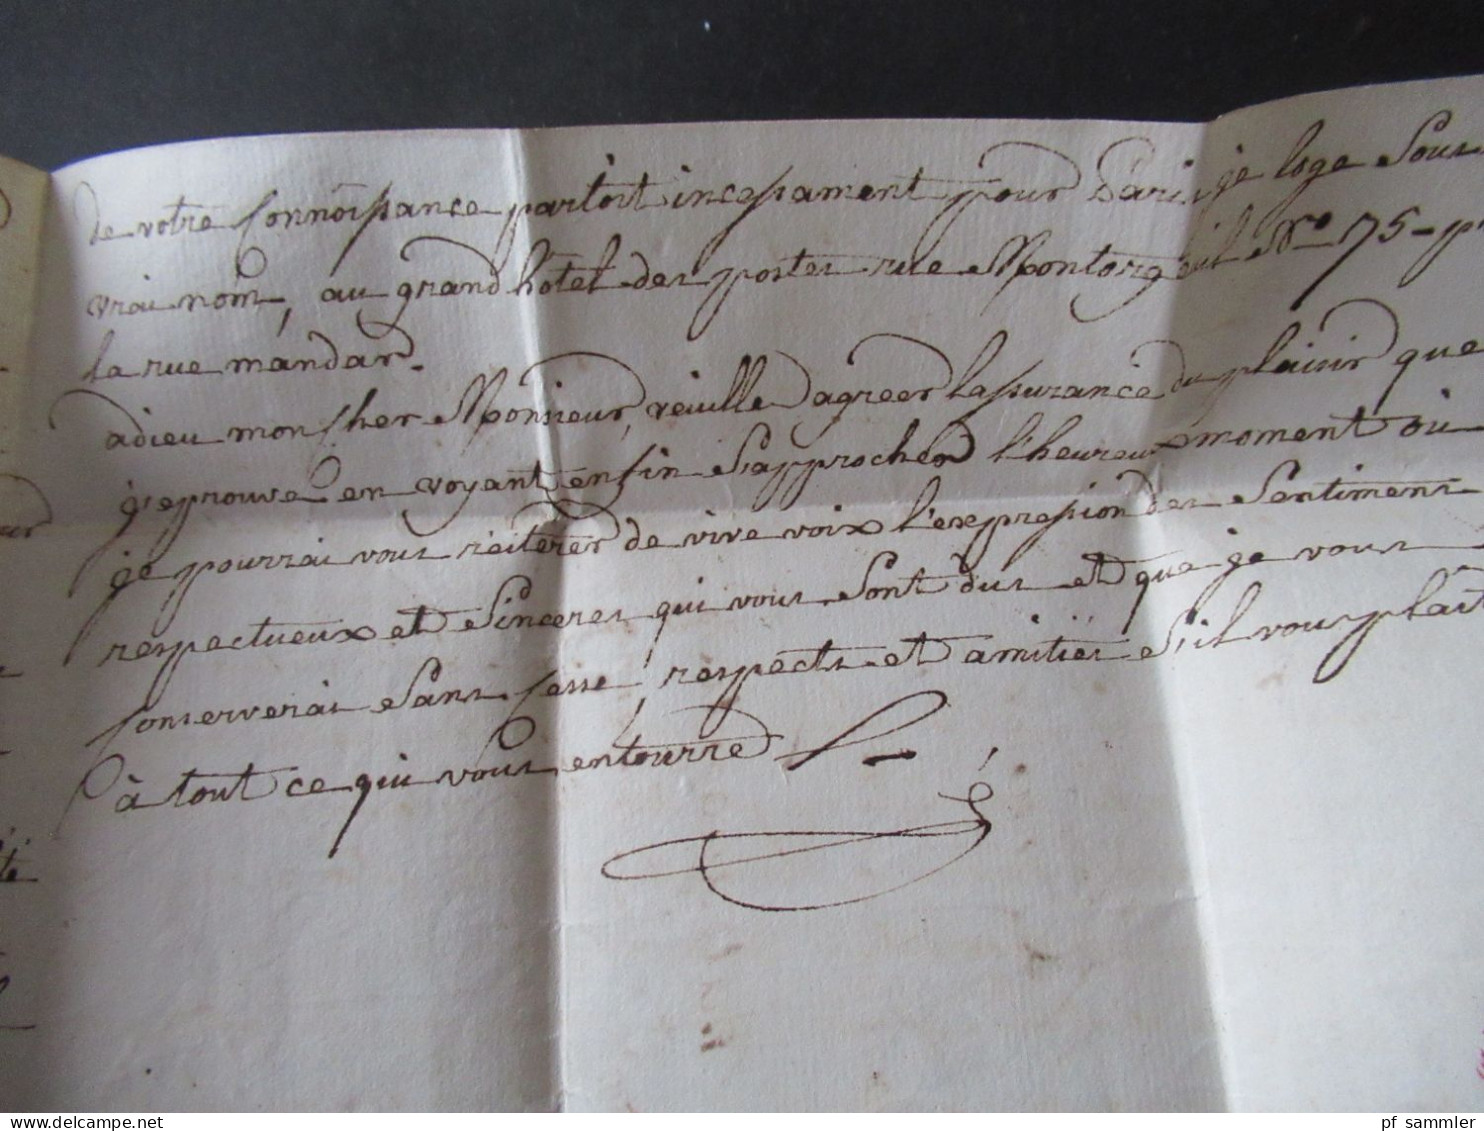 de votre connoissance partoit incessament pour Paris, je loge sous
vrai nom, au grand hôtel des postes rue Montorgeuil Nro 75 - p
la rue mandar.
adieu mon cher Monsieur, veuille agreer l'assurance du plaisir que
j'eprouve en voyant enfin s'approcher l'heureux moment où
je pourrai vous réiterer de vive voix l'expression des sentiments
respectueux et sinceres qui vous sont dus et que je vous
conserverai sans cesse, respects et amitiés s'il vous plait
à tout ce qui vous entourre
pf sammler